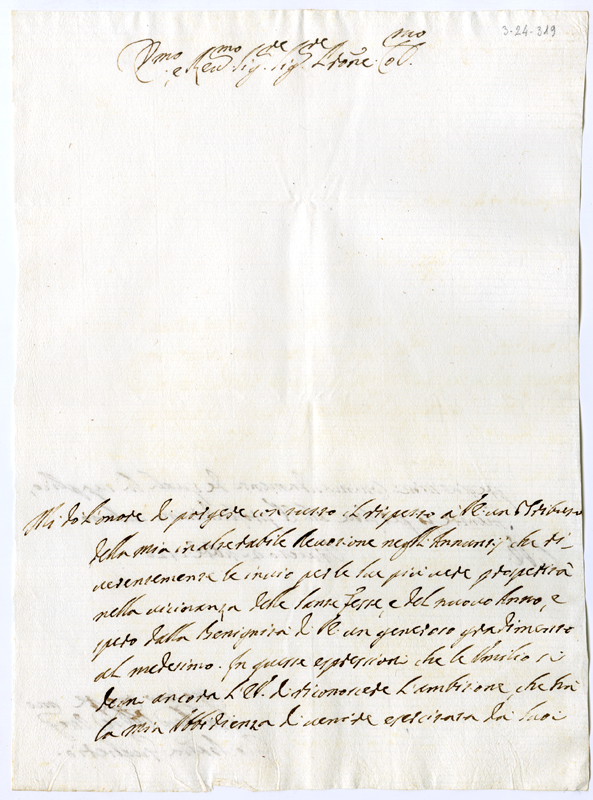 3-24-319
e Reu.mo Sig.re Sig.re Prõne
Mi dò l'onore di porgere con tutto il rispetto a VE. un Tributo
della mia inalterabile deuozione negli Annunzij che ri-
uerentemente le inuio per le sue più uere prosperità
nella uicinanza delle Sante Feste, e del nuouo Anno, e
spero dalla Benignità di VE. un generoso gradimento
al medesimo. In queste espressioni che le Umilio si
degni ancora l'EV. di riconoscere l'ambitione, che hà
la mia Obbidienza di uenire esercitata da suoi